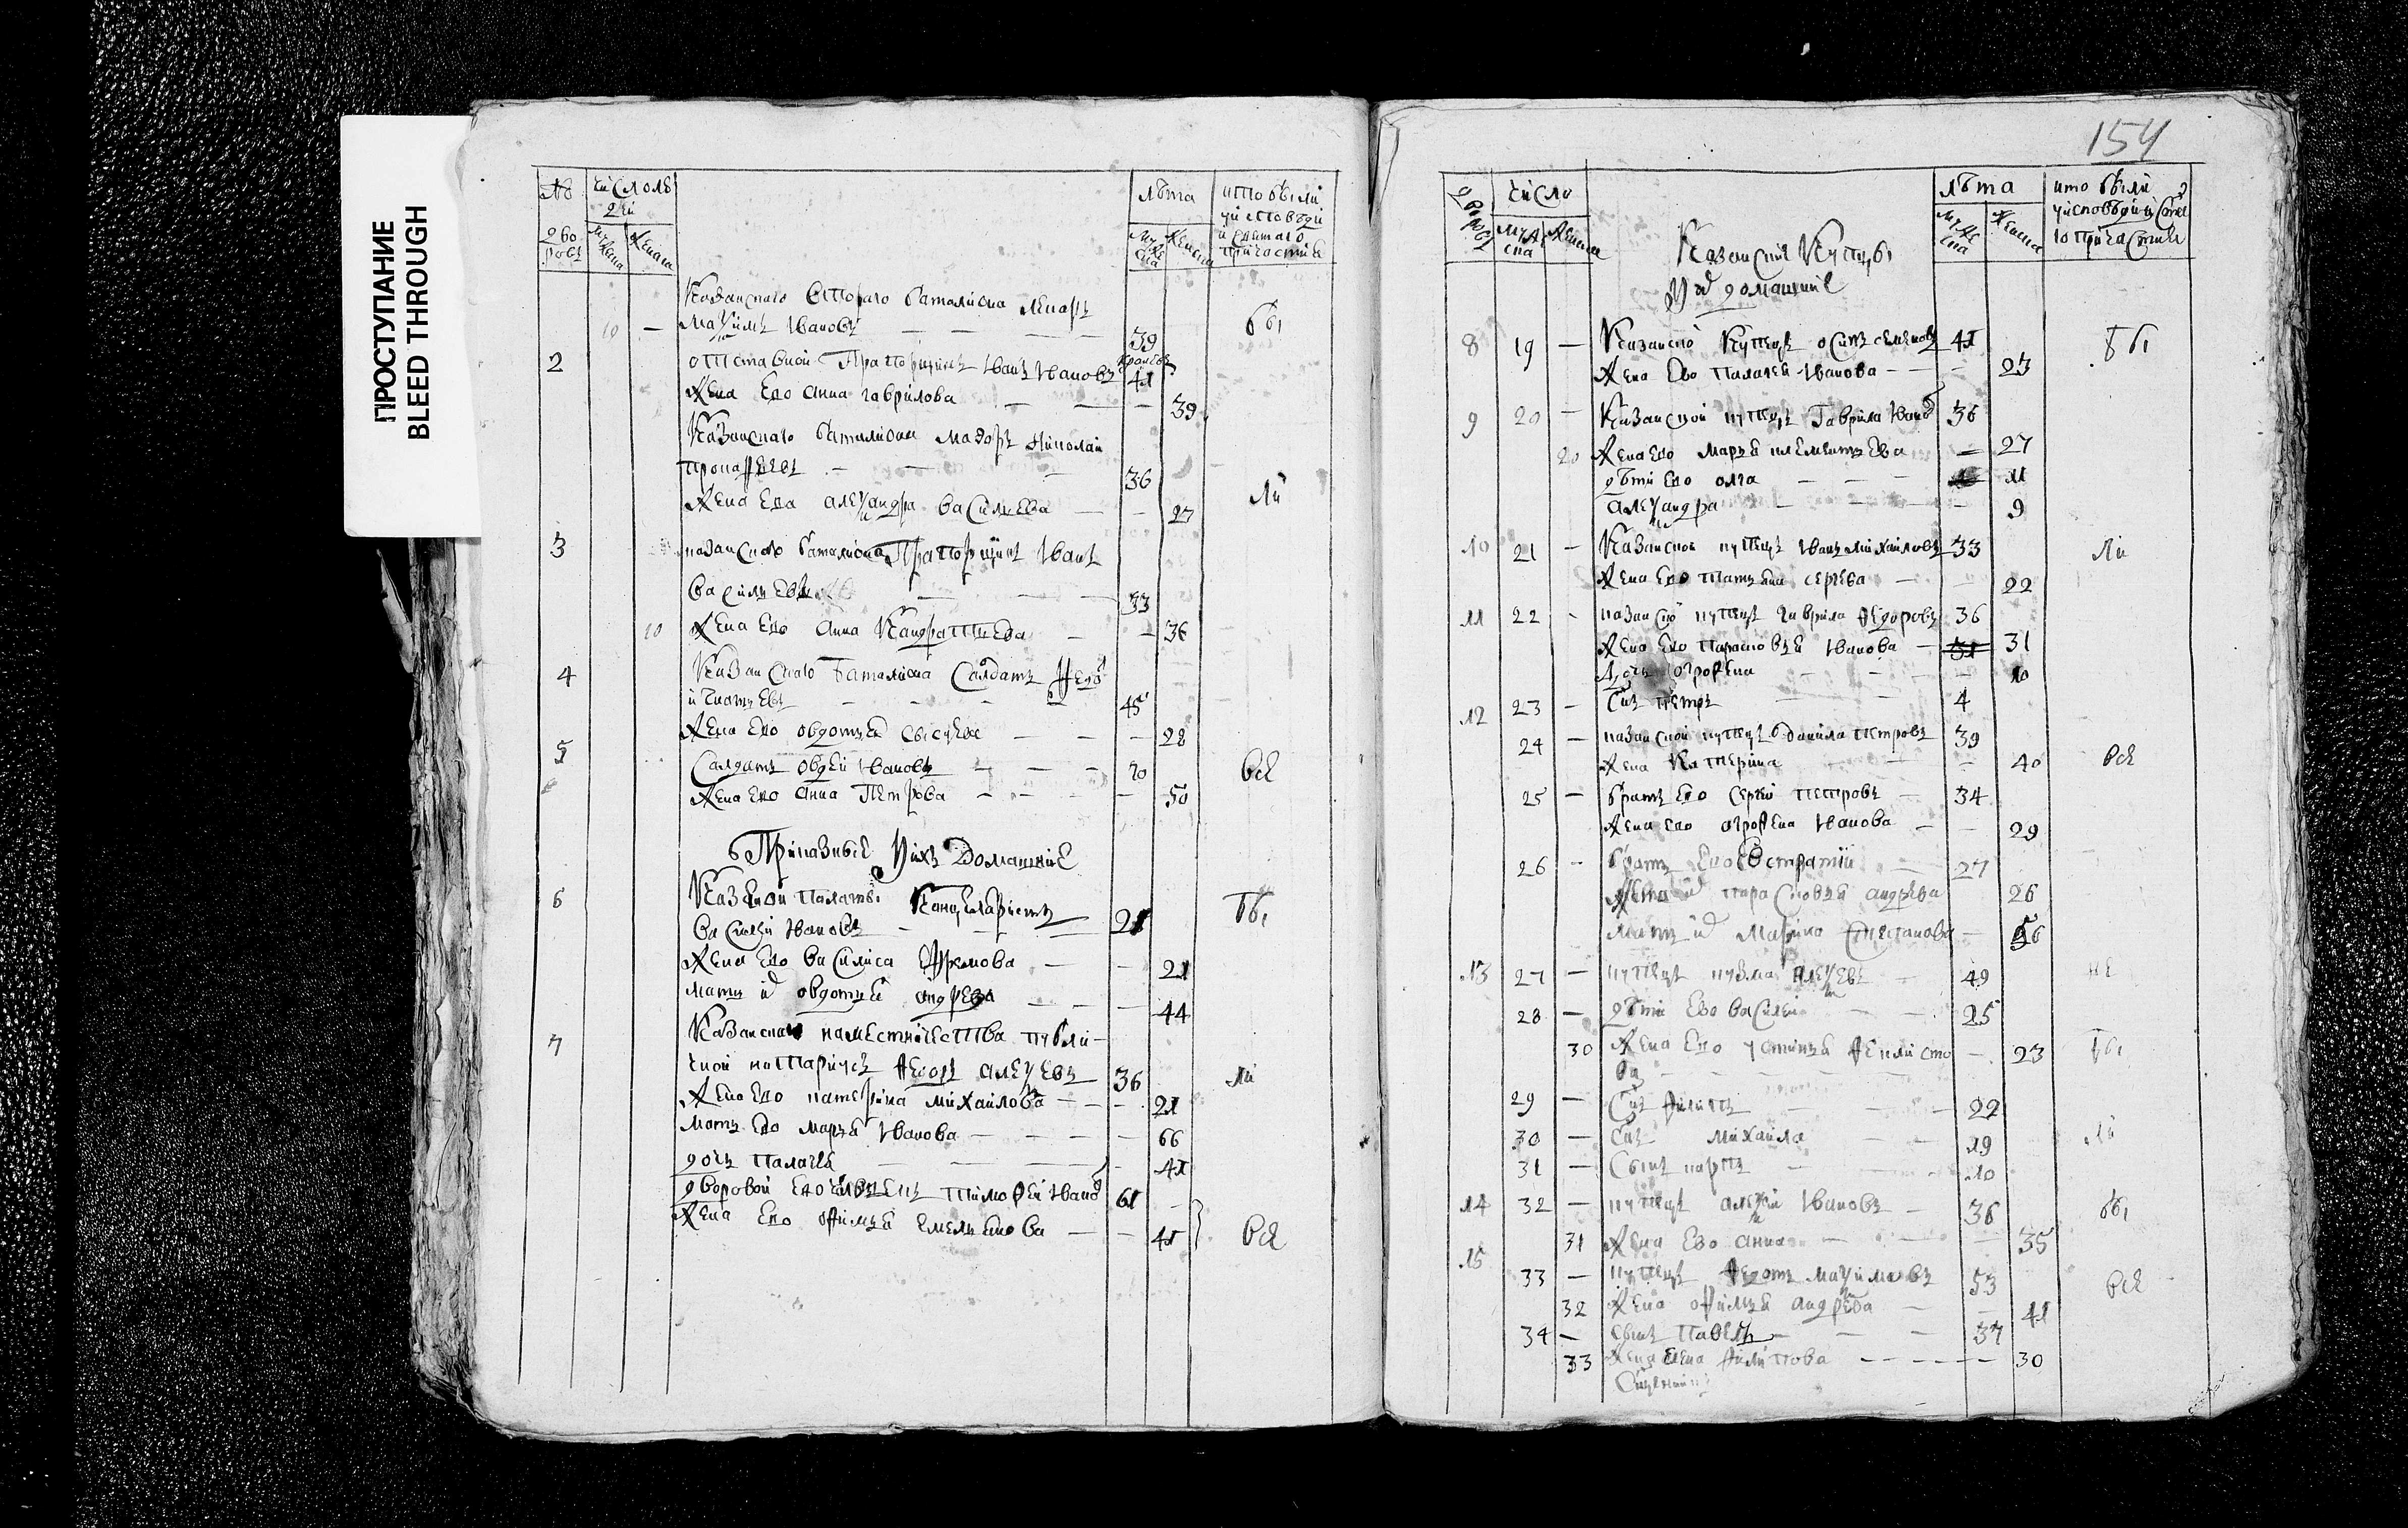 ПРОСТУПАНИЕ
BLEED THROUGH
№ дворовъ
число людей
мужеска женска
лѣта
мужеска женска
кто были у исповеди и святаго причастия
Казанского второго баталиона лекарь
Максимъ Ивановъ — — — 39 бы
10 —
2 отставной Прапорщикъ Иванъ Ивановъ 41
Жена Ево Анна Гаврилова — — — 39
Казанскаго баталиона маэоръ Николай
— — 36
Жена Ева Александра Васильева — — 27 ли
3 казанского баталиона Прапорщикъ Иванъ
Васильевъ — — — 33
10 Жена Ево Анна Кандратьева — — 36
4 Казанского баталиона Салдатъ Федо
Игнатьевъ — — — 45
Жена Ево овдотья — — — 28
5 Салдатъ Ивановъ — — — 70 все
Жена Ево Анна Петрова — — — 50
Приказные и ихъ Домашние
6 Казенной палаты Канцеляристъ
Василей Ивановъ — — 21 бы
Жена Ево Василиса — — 21
Мать их овдотья андрева — — — 44
7 Казанскаго наместничества публи-
чной натариусъ Федоръ алексевъ 36 ли
Жена Ево катерина михайлова — — — 21
Мать Ево марья Иванова — — — — 66
дочь Палагея — — — — 41
дворовой Ево человекъ тимофей Ивано 61 —
Жена Ево офимья Емельянова — — 41 все
154
дворовъ
число
мужеска женска
лѣта
мужеска женска
кто были у исповѣди и святаго причастия
Казанские Купцы
и их домашние
8 19 — Казанско Купецъ осипъ семеновъ 41 бы
Жена Ево палагея Иванова — — — 23
9 20 — Казанской купецъ Гаврила Ивано 36
20 Жена Ево марья климентьева — 27
дѣти Ево олга — — — 11
александра — — — 9
10 21 — Казанской купецъ Иванъ михайловъ 33 ли
Жена Ево татьяна сергева — — 22
11 22 - казанско купецъ гаврила Федоровъ 36
Жена Ево парасковья Иванова — 31 31
дочь огрофена — — — 10
12 23 — Сынъ петръ — — 4
24 — казанской купецъ данила петровъ 39
Жена Катерина — — — 40 все
25 — братъ Ево Сергей петровъ — 34
Жена Ево огрофена Иванова — — 29
26 - братъ Ево Евстратий — 27
Жена парасковья андрева 26
мать их Марина Степанова — 56
13 27 — купецъ кузма алексевъ — 49 не
28 — дѣти Ево Василей — — 25
30 Жена Ево устинья Феклисто — 23 бы
ва — — — — —
29 — Сынъ Филипъ — — 22
30 — Сынъ михайла — — 19 ли
31 — Сынъ карпъ — — 10
14 32 — купецъ алексей Ивановъ — 36 бы
31 Жена Ево анна — — — 35
15 33 — купецъ Федотъ максимовъ 53 все
32 Жена офимья андрева — — 41
34 — сынъ Павелъ — — — 37
33 Жена Елена Филипова — — — — — 30